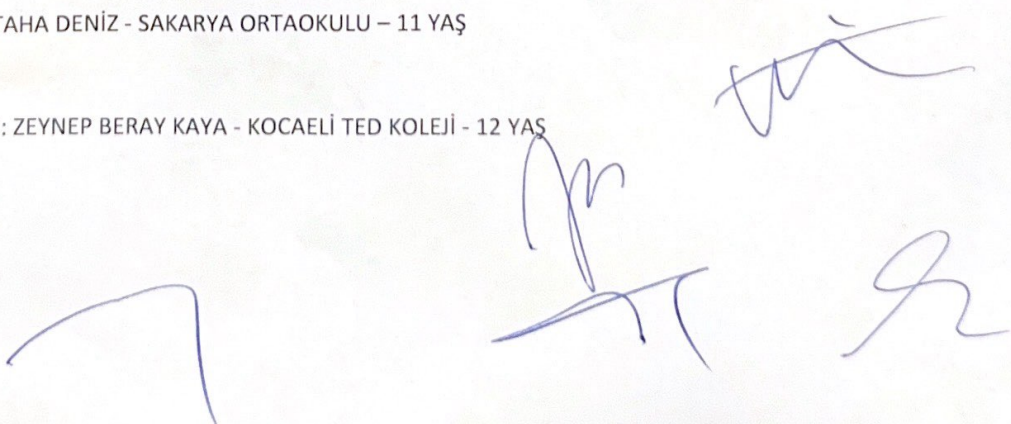 TAHA DENİZ - SAKARYA ORTAOKULU – 11 YAŞ
: ZEYNEP BERAY KAYA - KOCAELİ TED KOLEJİ - 12 YAŞ